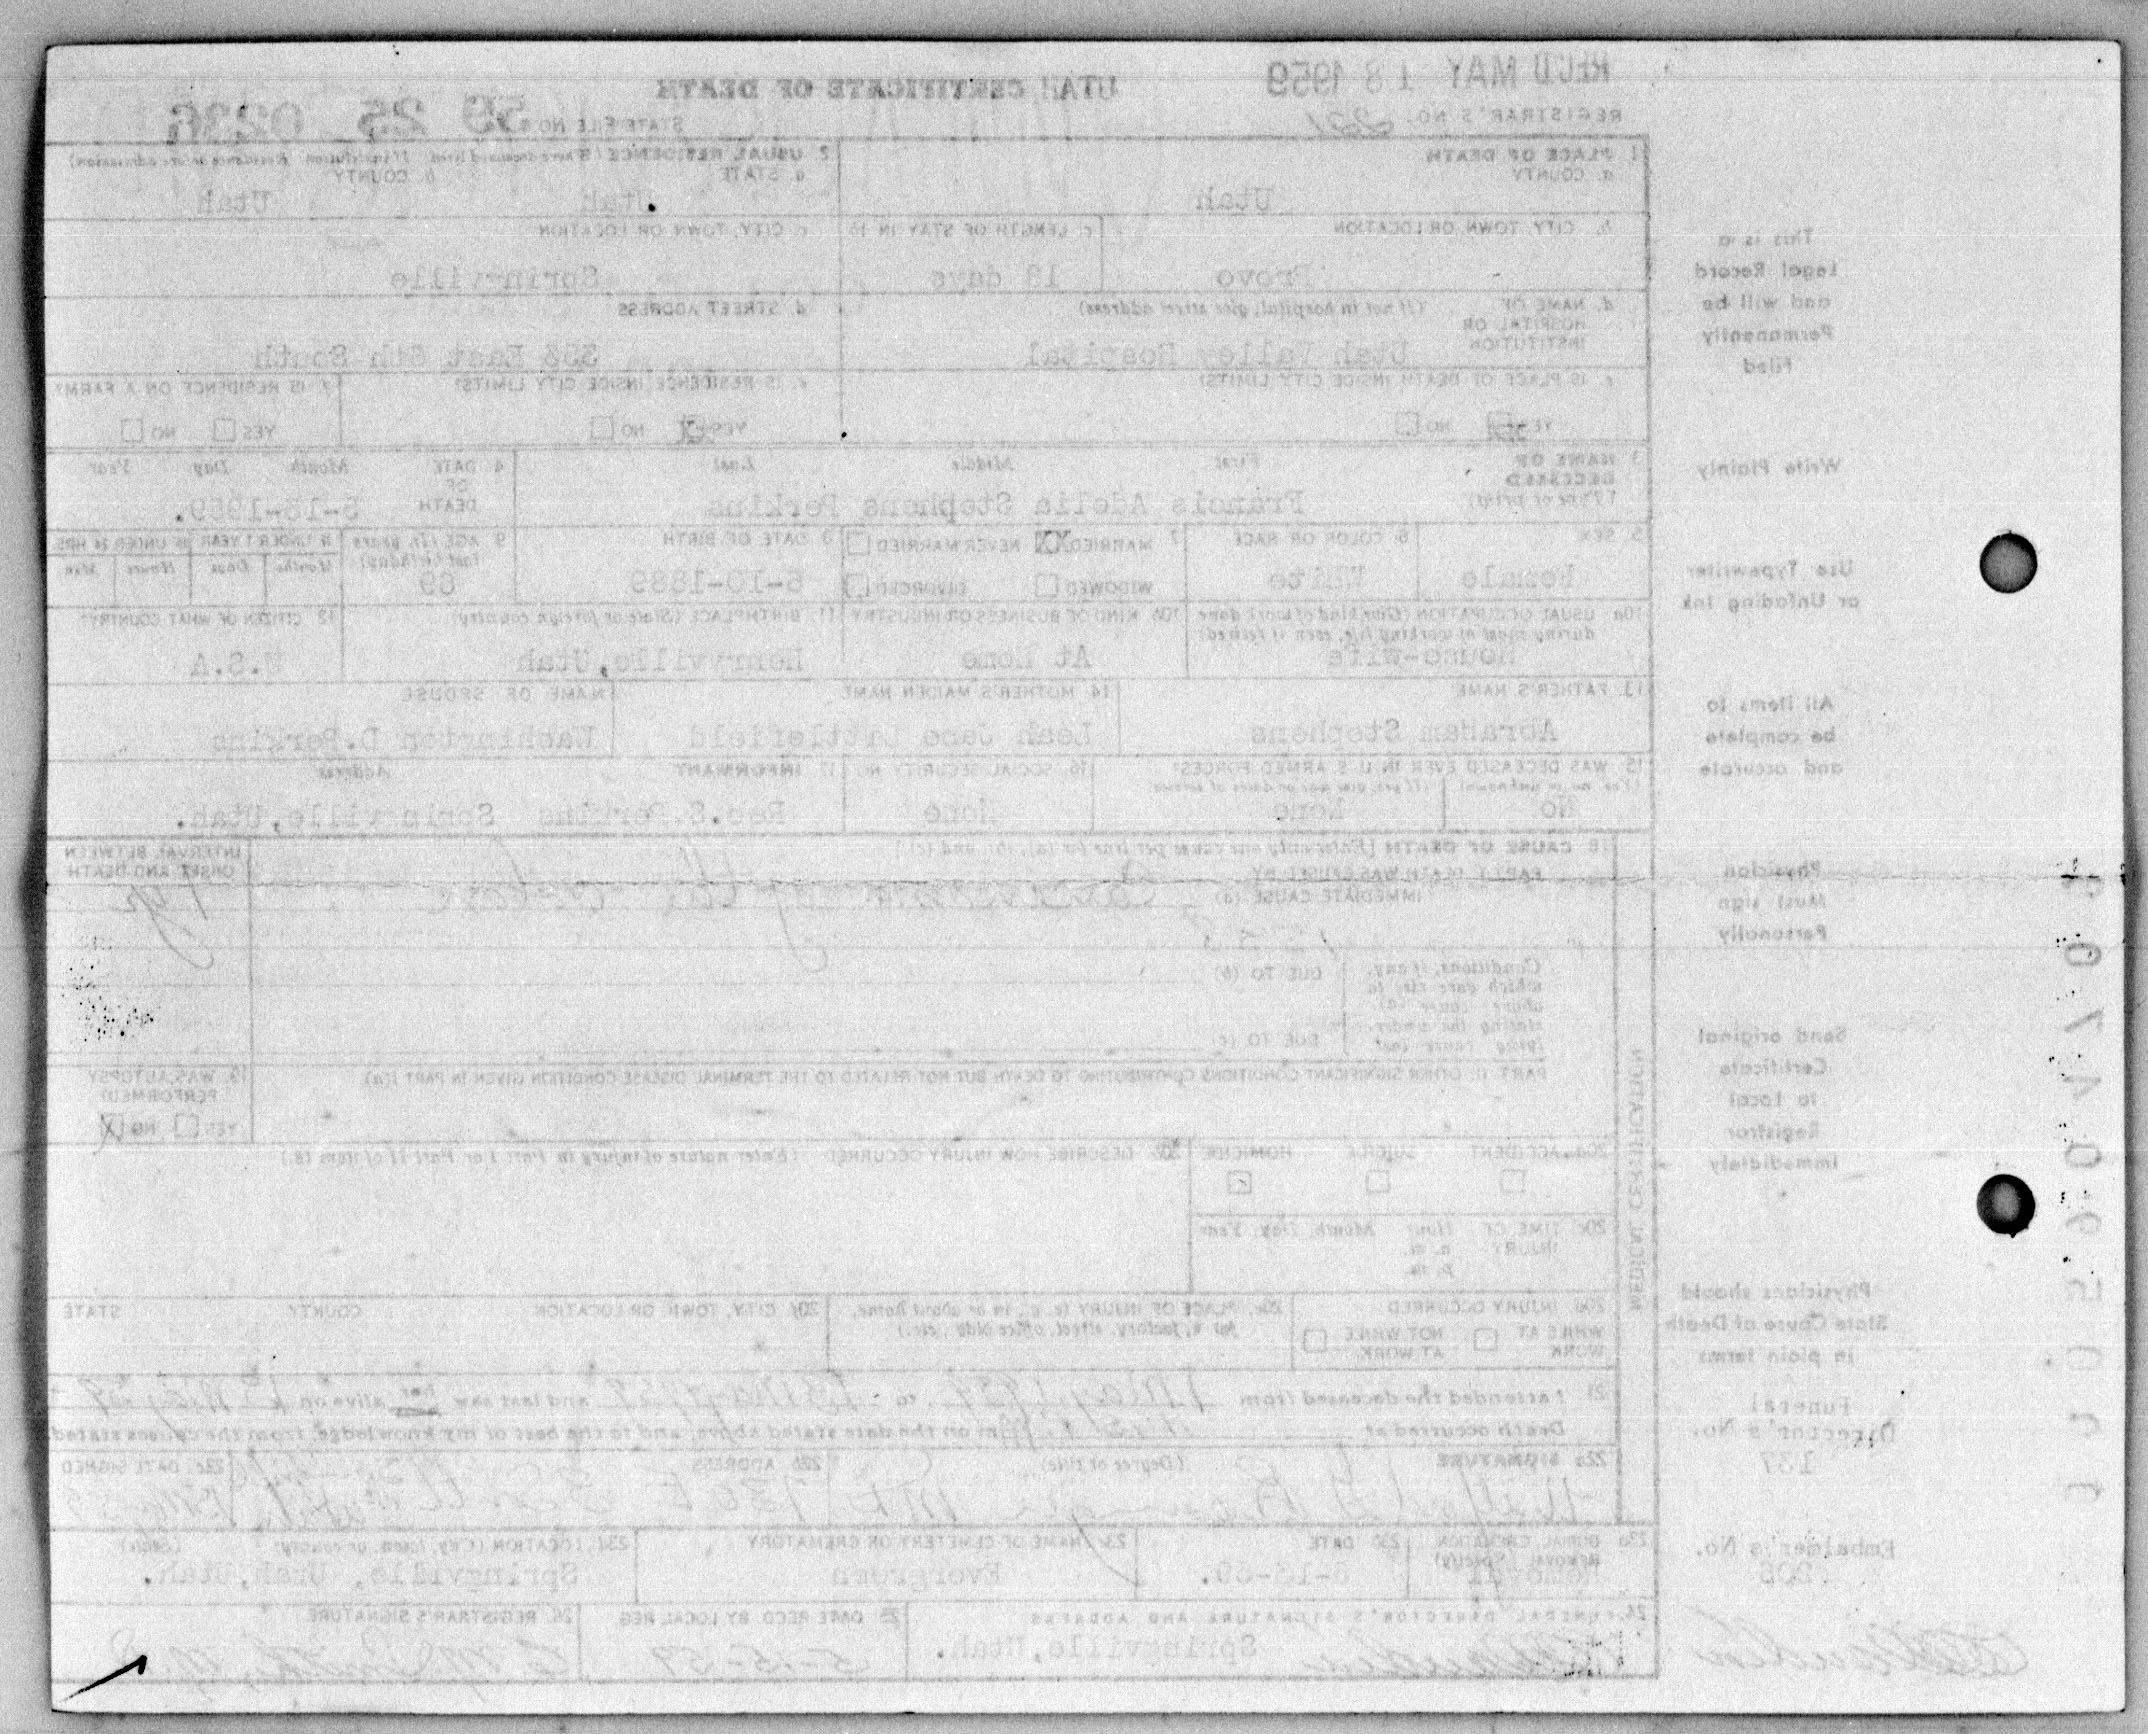 REC'D MAY 18 1959
UTAH CERTIFICATE OF DEATH
REGISTRAR'S NO. 221
STATE FILE NO. 59 25 0236
1 PLACE OF DEATH
a. COUNTY
Utah
2 USUAL RESIDENCE (Where deceased lived. If institution Residence before admission)
a. STATE
b. COUNTY
Utah
Utah
b. CITY, TOWN OR LOCATION
Provo
c LENGTH OF STAY IN 1b
c. CITY, TOWN OR LOCATION
Springville
d. NAME OF HOSPITAL OR INSTITUTION
(If not in hospital, give street address)
Utah Valley Hospital
d. STREET ADDRESS
East 6th South
e. IS PLACE OF DEATH INSIDE CITY LIMITS?
YES NO
e. IS RESIDENCE INSIDE CITY LIMITS?
YES X NO
f. IS RESIDENCE ON A FARM?
YES NO
3 NAME OF DECEASED
(Type or print)
First Middle Last
Francis Adelia Stephens Perkins
4 DATE OF DEATH
Month Day Year
5-13-1959.
5. SEX
Female
6 COLOR OR RACE
White
7 MARRIED XX NEVER MARRIED
WIDOWED DIVORCED
8 DATE OF BIRTH
-10-1889
9 AGE (In years last birthday)
69
IF UNDER 1 YEAR IF UNDER 24 HRS.
Months Days Hours Min
10a USUAL OCCUPATION (Give kind of work done during most of working life, even if retired)
House-Wife
10b KIND OF BUSINESS OR INDUSTRY
At Home
11. BIRTHPLACE (State or foreign country)
Henryville, Utah
12 CITIZEN OF WHAT COUNTRY?
U.S.A
13 FATHER'S NAME
Abraham Stephens
14 MOTHER'S MAIDEN NAME
Leah Jane Littlefield
NAME OF SPOUSE
Washington D. Perkins
15 WAS DECEASED EVER IN U.S. ARMED FORCES?
(Yes, no, or unknown) (If yes, give war or dates of service)
No
None
16 SOCIAL SECURITY NO
None
17 INFORMANT
Address
Perkins Springville, Utah.
18 CAUSE OF DEATH [Enter only one cause per line for (a), (b), and (c)]
PART I. DEATH WAS CAUSED BY
IMMEDIATE CAUSE (a)
INTERVAL BETWEEN ONSET AND DEATH
1 yr
Conditions, if any, which gave rise to above cause (a), stating the under-lying cause last
DUE TO (b)
DUE TO (c)
PART II. OTHER SIGNIFICANT CONDITIONS CONTRIBUTING TO DEATH BUT NOT RELATED TO THE TERMINAL DISEASE CONDITION GIVEN IN PART I(a).
19. WAS AUTOPSY PERFORMED?
YES NO X
MEDICAL CERTIFICATION
20a. ACCIDENT SUICIDE HOMICIDE
20b. DESCRIBE HOW INJURY OCCURRED (Enter nature of injury in Part I or Part II of item 18.)
20c TIME OF INJURY
Hour Month, Day, Year
a. m.
p. m.
20d INJURY OCCURRED
WHILE AT WORK NOT WHILE AT WORK
20e. PLACE OF INJURY (e. g., in or about home, farm, factory, street, office bldg., etc.)
20f CITY, TOWN, OR LOCATION COUNTY STATE
21 I attended the deceased from 1 May 1959, to 13 May 1959 and last saw her alive on May 59
Death occurred at m on the date stated above, and to the best of my knowledge, from the causes stated.
22a SIGNATURE (Degree or title)
MD
22b ADDRESS
22c. DATE SIGNED
23a BURIAL, CREMATION REMOVAL (Specify)
Removal
23b DATE
23c NAME OF CEMETERY OR CREMATORY
Evergreen
23d LOCATION (City, town, or county) (State)
Springville, Utah, Utah.
24. FUNERAL DIRECTOR'S SIGNATURE AND ADDRESS
Springville, Utah.
25 DATE RECD BY LOCAL REG
5-15-59
26 REGISTRAR'S SIGNATURE
This is a
Legal Record
and will be
Permanently
Filed
Write Plainly
Use Typewriter
or Unfading Ink
All items to
be complete
and accurate
Physician
Must sign
Personally
Send original
Certificate
to Local
Registrar
Immediately
Physicians should
State Cause of Death
in plain terms
Funeral
Director's No.
137
Embalmer's No.